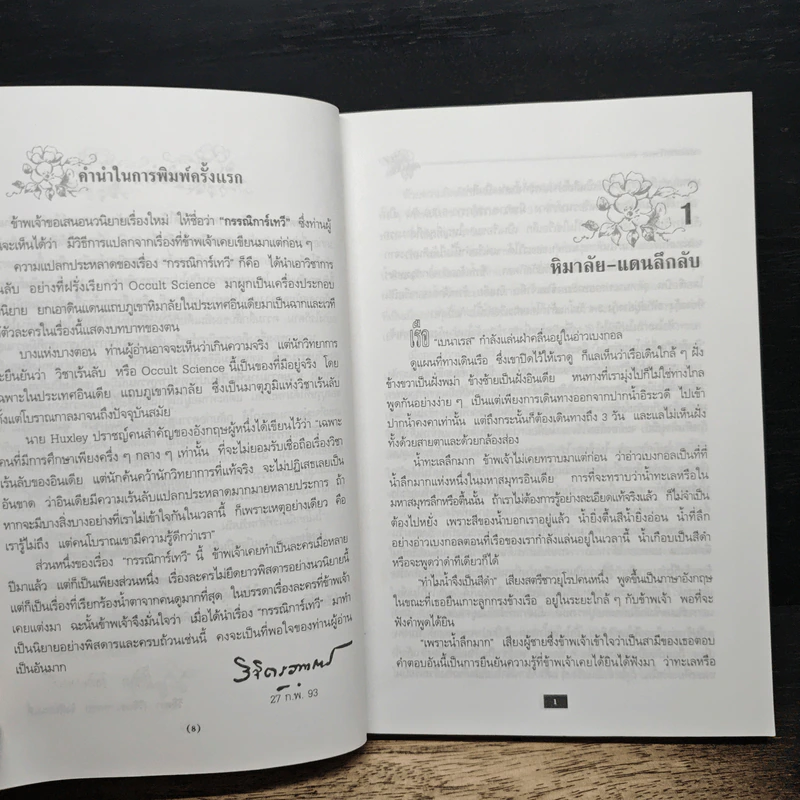 คำนำในการพิมพ์ครั้งแรก
ข้าพเจ้าขอเสนอนวนิยายเรื่องใหม่ ให้ชื่อว่า "กรรณิการ์เทวี" ซึ่งท่านผู้
นจะเห็นได้ว่า มีวิธีการแปลกจากเรื่องที่ข้าพเจ้าเคยเขียนมาแต่ก่อน ๆ
ความแปลกประหลาดของเรื่อง "กรรณิการ์เทวี" ก็คือ ได้นำเอาวิชาการ
ร้นลับ อย่างที่ฝรั่งเรียกว่า Occult Science มาผูกเป็นเครื่องประกอบ
นิยาย ยกเอาดินแดนแถบภูเขาหิมาลัยในประเทศอินเดียมาเป็นฉากและเวที
ตัวละครในเรื่องนี้แสดงบทบาทของตน
บางแห่งบางตอน ท่านผู้อ่านอาจจะเห็นว่าเกินความจริง แต่นักวิทยาการ
ะยืนยันว่า วิชาเร้นลับ หรือ Occult Science นี้เป็นของที่มีอยู่จริง โดย
ฉพาะในประเทศอินเดีย แถบภูเขาหิมาลัย ซึ่งเป็นมาตุภูมิแห่งวิชาเร้นลับ
ตั้งแต่โบราณกาลมาจนถึงปัจจุบันสมัย
นาย Huxley ปราชญ์คนสำคัญของอังกฤษผู้หนึ่งได้เขียนไว้ว่า "เฉพาะ
คนที่มีการศึกษาเพียงครึ่ง ๆ กลาง ๆ เท่านั้น ที่จะไม่ยอมรับเชื่อถือเรื่องวิชา
เร้นลับของอินเดีย แต่นักค้นคว้านักวิทยาการที่แท้จริง จะไม่ปฏิเสธเลยเป็น
อันขาด ว่าอินเดียมีความเร้นลับแปลกประหลาดมากมายหลายประการ ถ้า
หากจะมีบางสิ่งบางอย่างที่เราไม่เข้าใจกันในเวลานี้ ก็เพราะเหตุอย่างเดียว คือ
เรารู้ไม่ถึง แต่คนโบราณเขามีความรู้ดีกว่าเรา"
ส่วนหนึ่งของเรื่อง "กรรณิการ์เทวี" นี้ ข้าพเจ้าเคยทำเป็นละครเมื่อหลาย
ปีมาแล้ว แต่ก็เป็นเพียงส่วนหนึ่ง เรื่องละครไม่ยืดยาวพิสดารอย่างนวนิยายนี้
แต่ก็เป็นเรื่องที่เรียกร้องน้ำตาจากคนดูมากที่สุด ในบรรดาเรื่องละครที่ข้าพเจ้า
เคยแต่งมา ฉะนั้นข้าพเจ้าจึงมั่นใจว่า เมื่อได้นำเรื่อง "กรรณิการ์เทวี" มาทำ
เป็นนิยายอย่างพิสดารและครบถ้วนเช่นนี้ คงจะเป็นที่พอใจของท่านผู้อ่าน
เป็นอันมาก
วิจิตรวาทการ
27 ก.พ. 93
(8)
1
หิมาลัย-แดนลึกลับ
เรือ "เบนาเรส" กำลังแล่นฝ่าคลื่นอยู่ในอ่าวเบงกอล
ดูแผนที่ทางเดินเรือ ซึ่งเขาปิดไว้ให้เราดู ก็แลเห็นว่าเรือเดินใกล้ ๆ ฝั่ง
ข้างขวาเป็นฝั่งพม่า ข้างซ้ายเป็นฝั่งอินเดีย หนทางที่เรามุ่งไปก็ไม่ใช่ทางไกล
พูดกันอย่างง่าย ๆ เป็นแต่เพียงการเดินทางออกจากปากน้ำอิระวดี ไปเข้า
ปากน้ำคงคาเท่านั้น แต่ถึงกระนั้นก็ต้องเดินทางถึง 3 วัน และแลไม่เห็นฝั่ง
ทั้งด้วยสายตาและด้วยกล้องส่อง
น้ำทะเลลึกมาก ข้าพเจ้าไม่เคยทราบมาแต่ก่อน ว่าอ่าวเบงกอลเป็นที่ที่
น้ำลึกมากแห่งหนึ่งในมหาสมุทรอินเดีย การที่จะทราบว่าน้ำทะเลหรือใน
มหาสมุทรลึกหรือตื้นนั้น ถ้าเราไม่ต้องการรู้อย่างละเอียดแท้จริงแล้ว ก็ไม่จำเป็น
ต้องไปหยั่ง เพราะสีของน้ำบอกเราอยู่แล้ว น้ำยิ่งตื้นสีน้ำยิ่งอ่อน น้ำที่ลึก
อย่างอ่าวเบงกอลตอนที่เรือของเรากำลังแล่นอยู่ในเวลานี้ น้ำเกือบเป็นสีดำ
หรือจะพูดว่าดำทีเดียวก็ได้
"ทำไมน้ำจึงเป็นสีดำ" เสียงสตรีชาวยุโรปคนหนึ่ง พูดขึ้นเป็นภาษาอังกฤษ
ในขณะที่เธอยืนเกาะลูกกรงข้างเรือ อยู่ในระยะใกล้ ๆ กับข้าพเจ้า พอที่จะ
ฟังคำพูดได้ยิน
"เพราะน้ำลึกมาก" เสียงผู้ชายซึ่งข้าพเจ้าเข้าใจว่าเป็นสามีของเธอตอบ
คำตอบอันนี้เป็นการยืนยันความรู้ที่ข้าพเจ้าเคยได้ยินได้ฟังมา ว่าทะเลหรือ
1